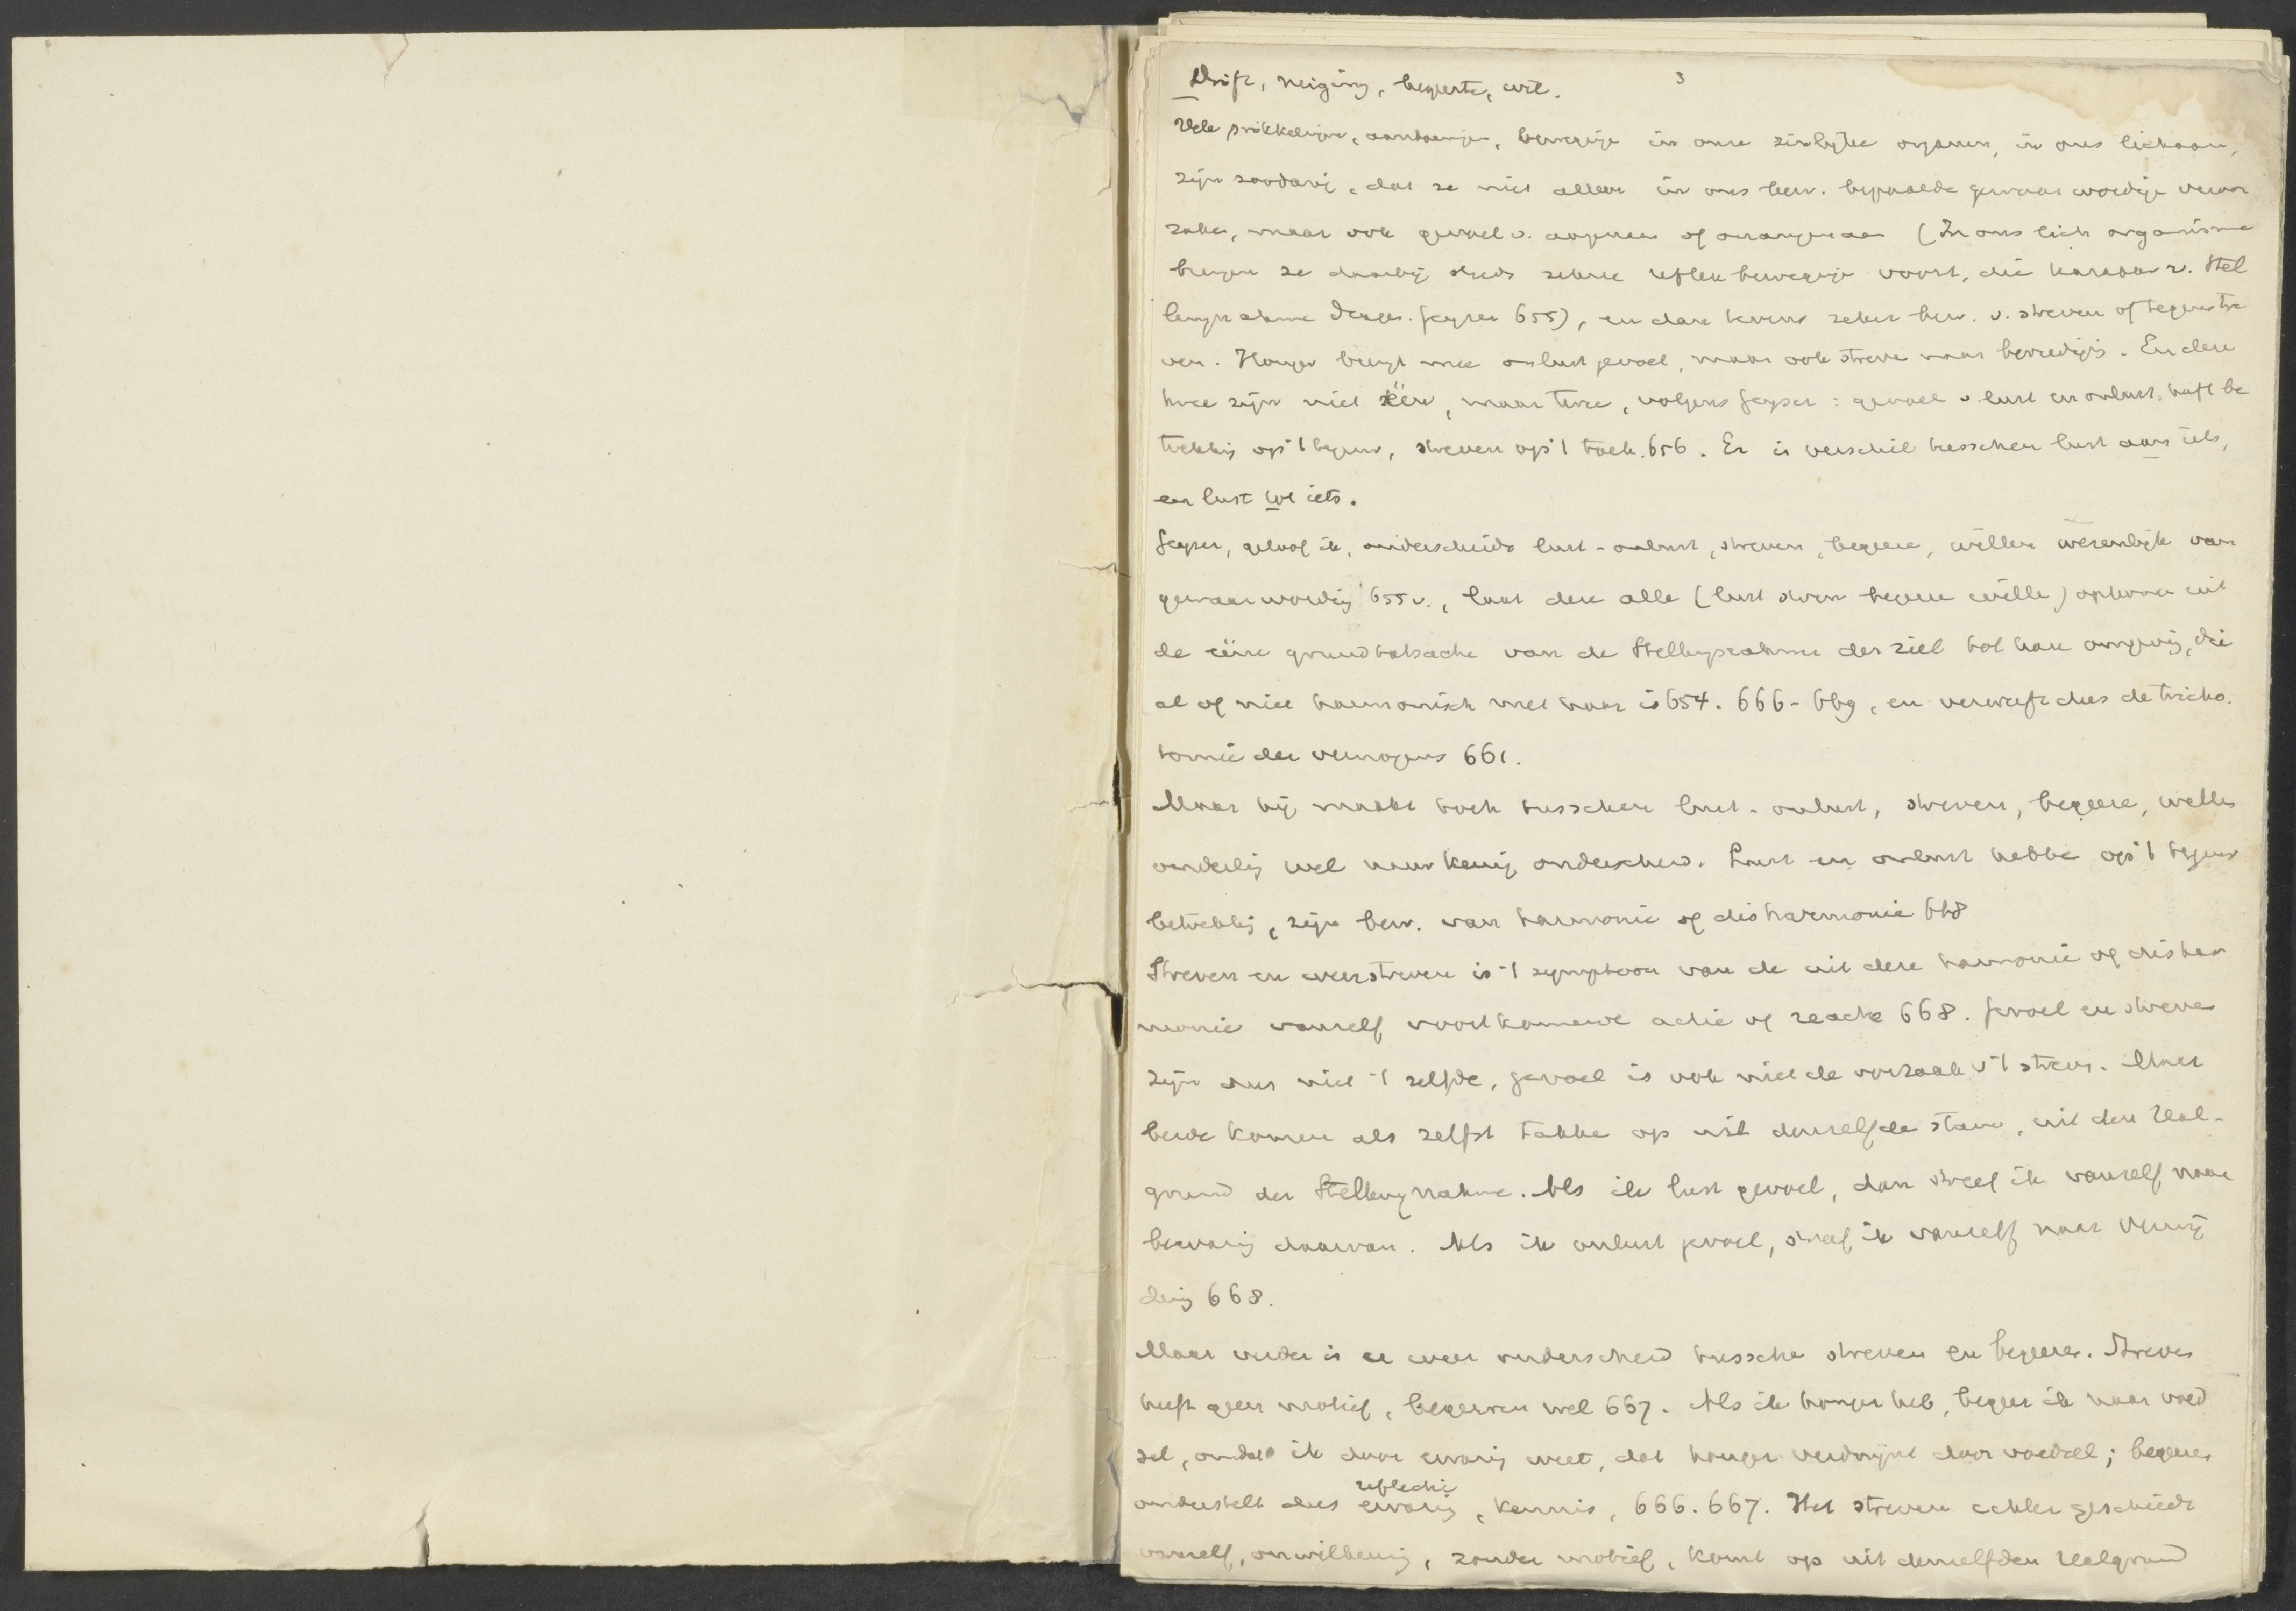 Drift, neiging, begeerte, wil. 3
Vele prikkelingen, aandoeningen, bewegige in onze zinlijke organen, in ons lichaam,
zijn zoodanig, dat ze niet alleen in ons bew. bepaalde gewaarwordige veroor
zaken, maar ook gevoel v. aangenaam of onaangenaam (In ons lich organisme
brengen ze daarbij steeds zekere reflexbewegige voort, die karakter v. Stel
lungnahme dragen. Geyser 655), en dan tevens zeker bew. v. streven of tegenstre
ven. Honger brengt mee onlustgevoel, maar ook streven naar bevredigig. En deze
twee zijn niet één, maar twee, volgens Geyser: gevoel v. lust en onlust heeft be
trekkig op 't tegenw, streven op 't toek. 656. Er is verschil tusschen lust aan iets,
en lust tot iets.
Geyser, geloof ik, onderscheidt lust-onlust, streven, begeere, willen wezenlijk van
gewaarwordig 655 v., laat deze alle (lust streven begeere wille) opkomen uit
de ééne grundtatsache van de Stellungnahme der ziel tot hare omgevig, die
al of niet harmonisch met haar is 654. 666-669, en verwerft dus de tricho
tomie der vermogens 661.
Maar hij maakt toch tusschen lust-onlust, streven, begeere, willen
onderlig wel nauwkeurig onderscheid. Lust en onlust hebbe op 't tegenw
betrekkig, zijn bew. van harmonie of disharmonie 668
Streven en weerstreven is 't symptoom van de uit deze harmonie of dishar
monie vanzelf voortkomende actie of reactie 668. Gevoel en streven
zijn dus niet 't zelfde, gevoel is ook niet de oorzaak v 't streven. Maar
beide komen als zelfst takke op uit denzelfde stam, uit den Real-
grund der Stellungnahme. Als ik lust gevoel, dan streef ik vanzelf naar
bewarig daarvan. Als ik onlust gevoel, streef ik vanzelf naar vermij
dig 668.
Maar verder is er weer onderscheid tussche streven en begeeren. Streven
heeft geen motief, begeeren wel 667. Als ik honger heb, begeer ik naar voed
sel, omdat ik door ervarig weet, dat honger verdwijnt door voedsel; begeeren
onderstelt dus ervarig, reflectie kennis, 666. 667. Het streven echter geschiedt
vanzelf, onwillekeurig, zonder motief, komt op uit denzelfden Realgrund